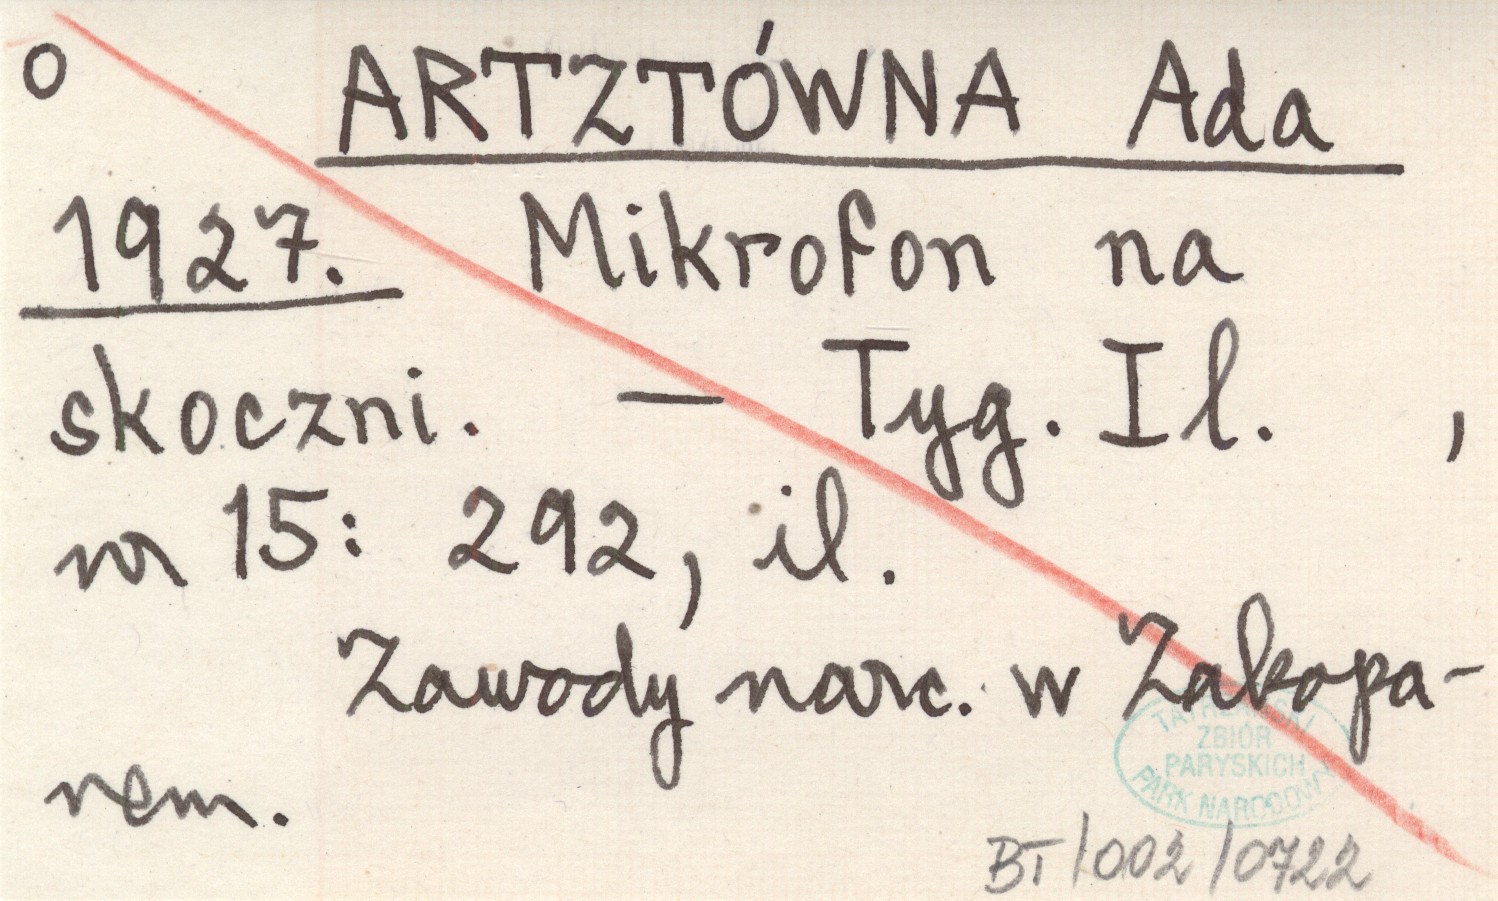 o ARTZTÓWNA Ada
1927. Mikrofon na
skoczni. — Tyg. Il. ,
nr 15: 292, il.
Zawody narc. w Zakopa-
nem.
TATRZAŃSKI
ZBIÓR
PARYSKICH
PARK NARODOWY
BT/002/0722